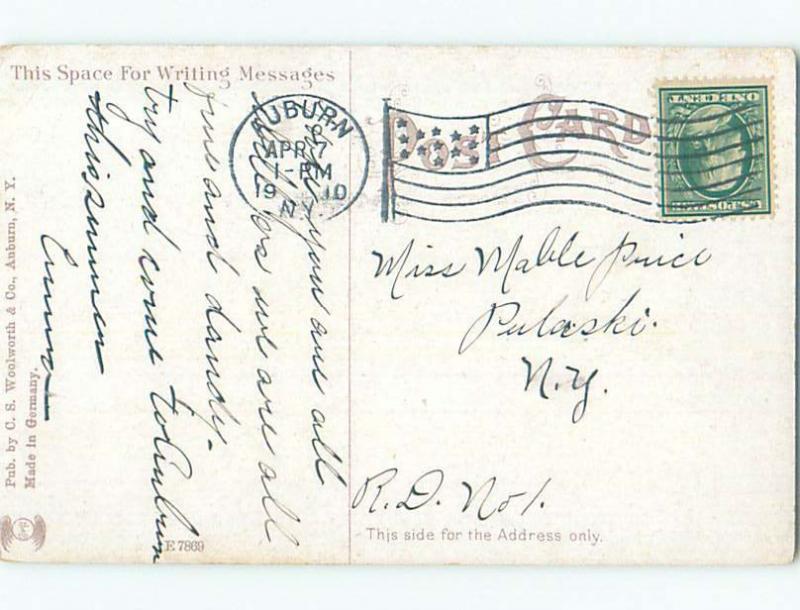 This Space For Writing Messages
POST CARD
AUBURN
APR
1- PM
19 10
N.Y.
you are all
well as we are all
fine and dandy.
try and come to Auburn
this summer
Emma
Miss Mable Price
Pulaski.
N.Y.
R.D. No 1.
This side for the Address only.
Pub. by C. S. Woolworth & Co., Auburn, N. Y.
Made in Germany.
E 7869